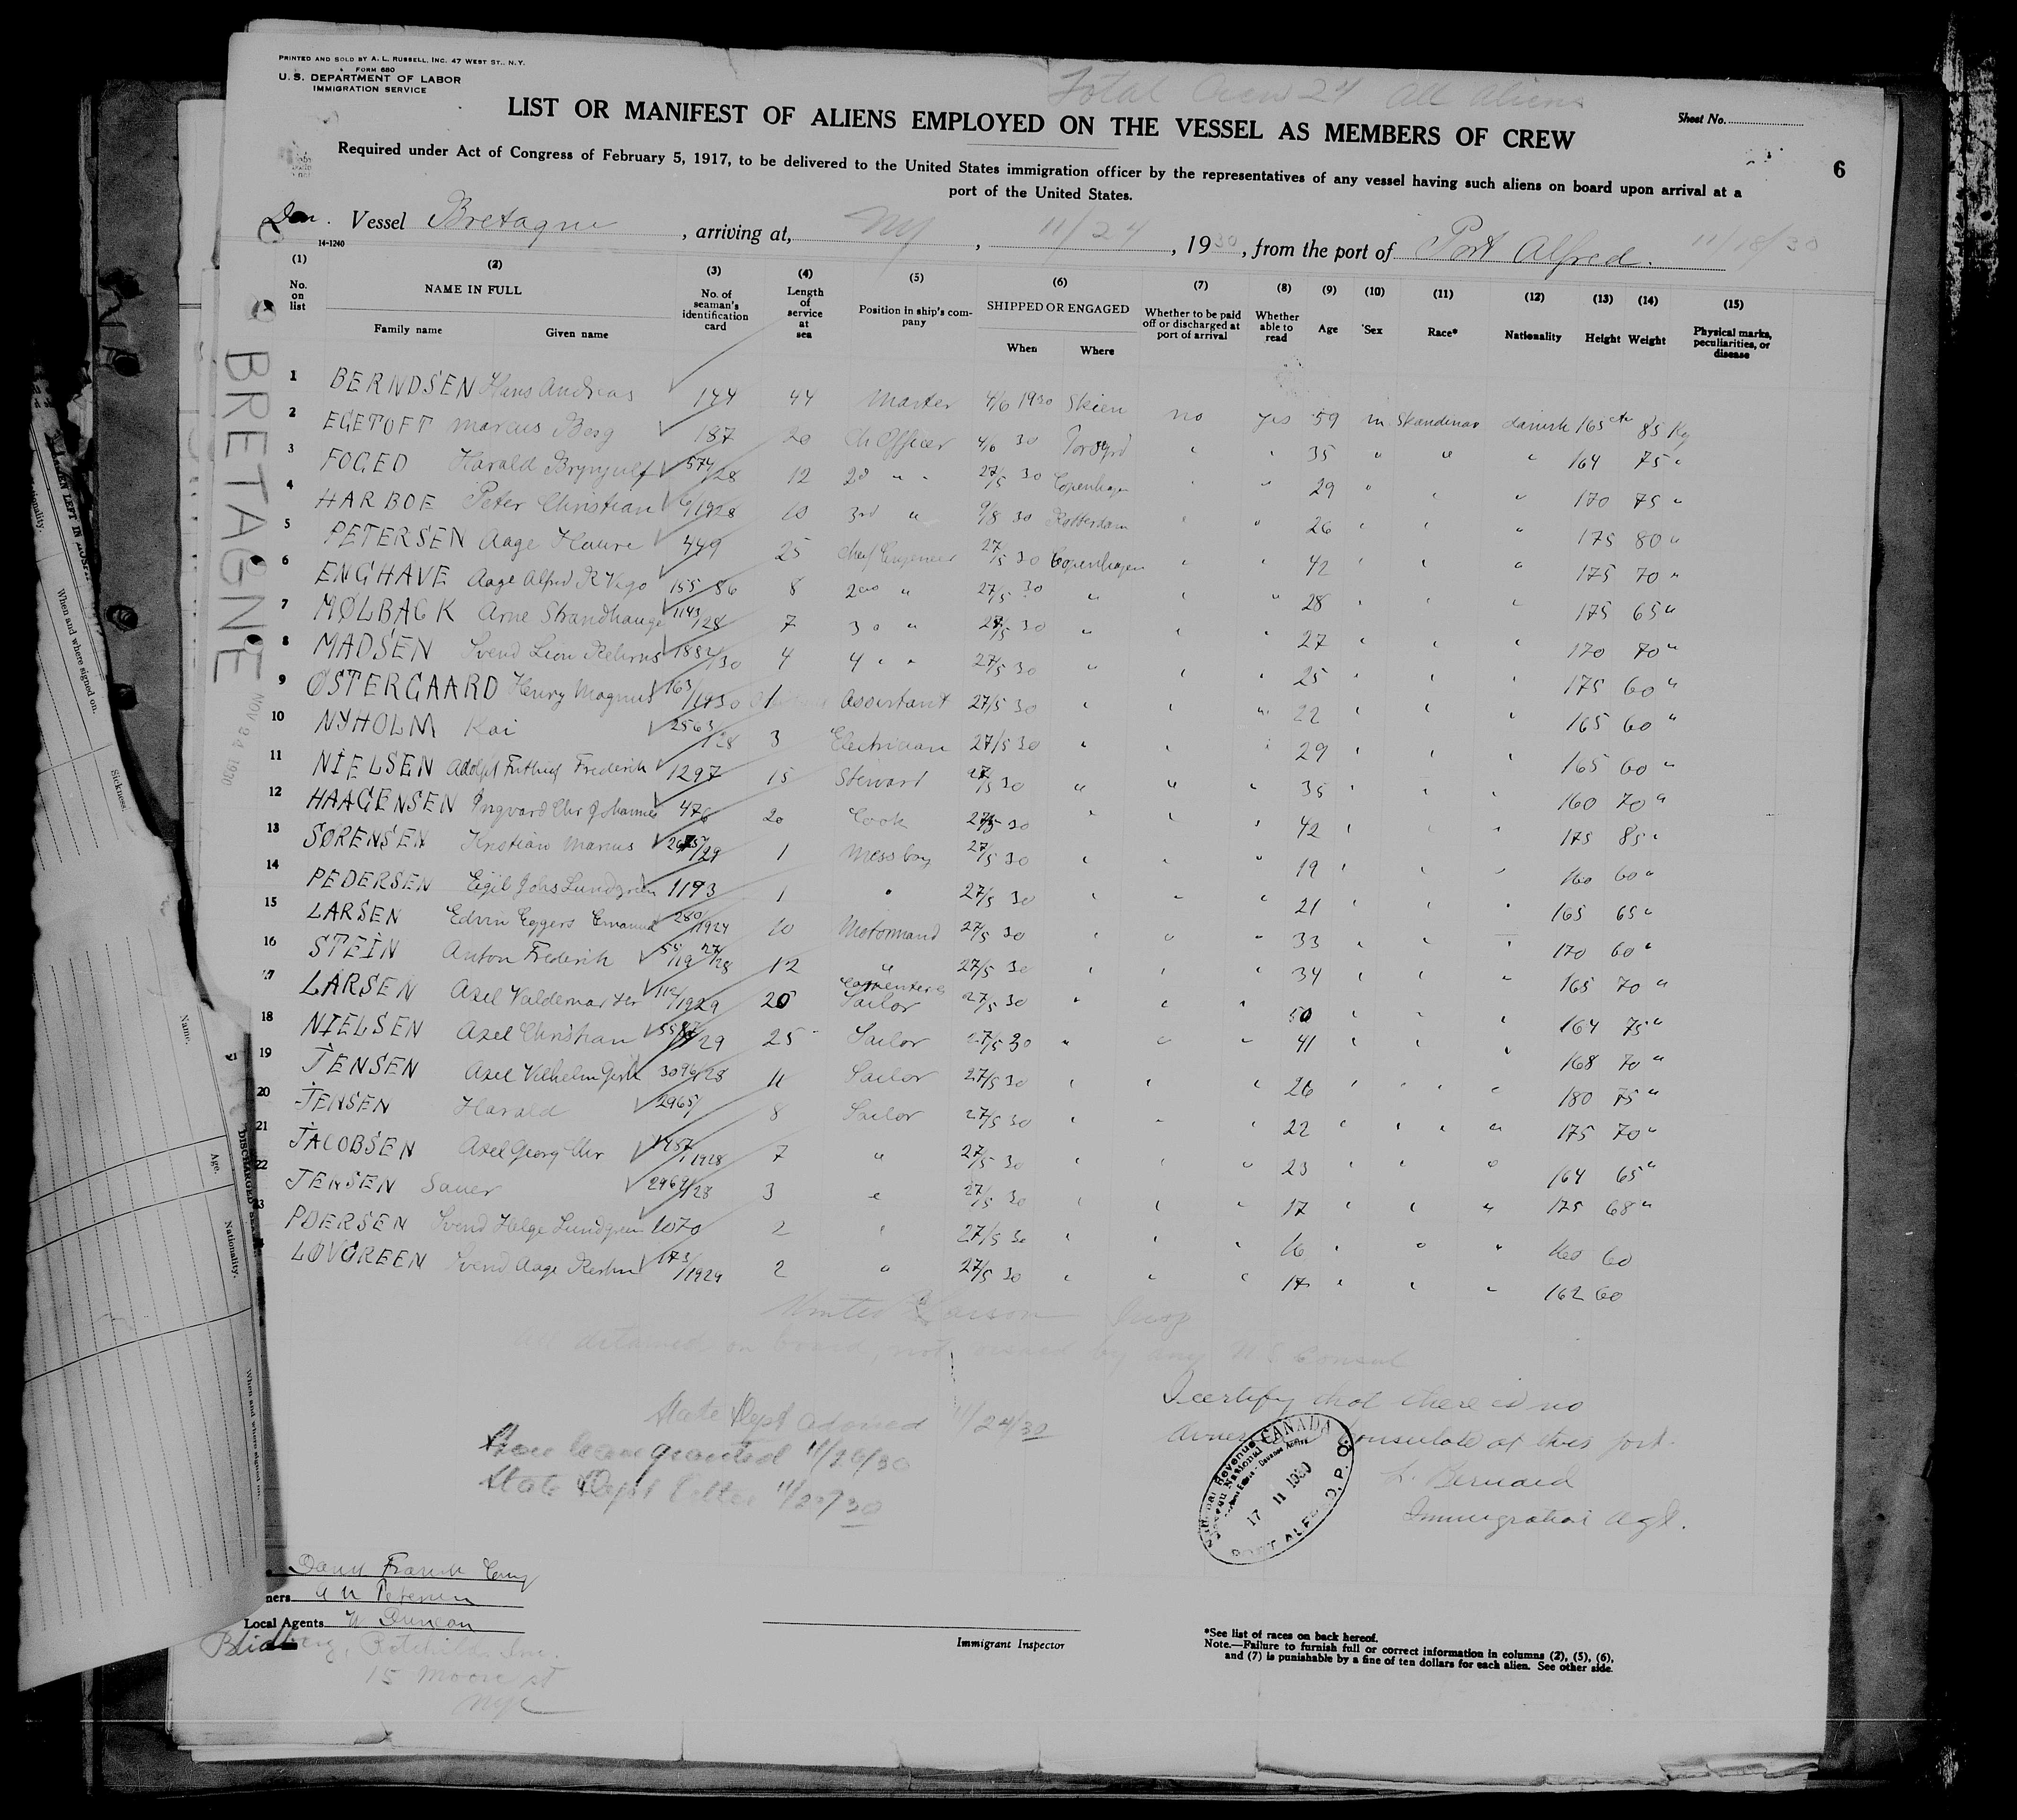 PRINTED AND SOLD BY A. L. RUSSELL, INC. 47 WEST ST., N.Y.
FORM 680
U. S. DEPARTMENT OF LABOR
IMMIGRATION SERVICE
Total Crew 24 All aliens
LIST OR MANIFEST OF ALIENS EMPLOYED ON THE VESSEL AS MEMBERS OF CREW
Sheet No.
6
Required under Act of Congress of February 5, 1917, to be delivered to the United States immigration officer by the representatives of any vessel having such aliens on board upon arrival at a
port of the United States.
Dan. Vessel Bretagne, arriving at, NY, 11/24, 1930, from the port of Port Alfred. 11/18/30
14-1240
(1) (2) (3) (4) (5) (6) (7) (8) (9) (10) (11) (12) (13) (14) (15)
No. on list NAME IN FULL Family name Given name No. of seaman's identification card Length of service at sea Position in ship's company SHIPPED OR ENGAGED When Where Whether to be paid off or discharged at port of arrival Whether able to read Age Sex Race* Nationality Height Weight Physical marks, peculiarities, or disease
BRETAGNE
NOV 24 1930
1 BERNDSEN Hans Andreas 144 44 Master 4/6 1930 Skien no yes 59 m Skandinav danish 165 85 Kg
2 EGETOFT Marcus Berg 187 20 Ch Officer 4/6 30 35 " " " 164 75 "
3 FOGED Harald 574/28 12 2d " " 27/5 30 Copenhagen " " 29 " " " 170 75 "
4 HARBOE Peter Christian 6/1928 10 3rd " 9/8 30 Rotterdam " " 26 " " " 175 80 "
5 PETERSEN Aage 449 25 Chief Engineer 27/5 30 Copenhagen " " 42 " " " 175 70 "
6 ENGHAVE Aage Alfred R 155/86 8 2nd " 27/5 30 " " " 28 " " " 175 65 "
7 MØLBACK Arne Strandhauge 1143/28 7 3d " 27/5 30 " " " 27 " " " 170 70 "
8 MADSEN Svend Leon 4 4 " " 27/5 30 " " " 25 " " " 175 60 "
9 ØSTERGAARD Henry Magnus 163/1930 1 Assistant 27/5 30 " " " 22 " " " 165 60 "
10 NYHOLM Kai 2563/28 3 Electrician 27/5 30 " " " 29 " " " 165 60 "
11 NIELSEN Adolf Frederik 1297 15 Steward 27/5 30 " " " 35 " " " 160 70 "
12 HAAGENSEN Ingvard Chr Johannes 476 20 Cook 27/5 30 " " " 42 " " " 175 85 "
13 SØRENSEN Kristian Marius 1 Mess boy 27/5 30 " " " 19 " " " 160 60 "
14 PEDERSEN Egil Johs Lundgreen 1193 1 " 27/5 30 " " " 21 " " " 165 65 "
15 LARSEN Edvin Eggers Emanuel 280/1924 10 Motormand 27/5 30 " " " 33 " " " 170 60 "
16 STEIN Anton Frederik 12 " 27/5 30 " " " 34 " " " 165 70 "
17 LARSEN Axel Valdemar 112/1929 20 Sailor 27/5 30 " " " 50 " " " 164 75 "
18 NIELSEN Axel Christian 25 Sailor 27/5 30 " " " 41 " " " 168 70 "
19 JENSEN Axel Vilhelm 3096/28 11 Sailor 27/5 30 " " " 26 " " " 180 75 "
20 JENSEN Harald 2965/ 8 Sailor 27/5 30 " " " 22 " " " 175 70 "
21 JACOBSEN Axel Georg Chr 1928 7 " 27/5 30 " " " 23 " " " 164 65 "
22 JENSEN 3 " 27/5 30 " " " 17 " " " 175 68 "
PDERSEN Svend Helge Lundgreen 1070 2 " 27/5 30 " " " 16 " " " 160 60
LØVGREEN Svend Aage 173/1929 2 " 27/5 30 " " " 17 " " " 162 60
Insp
All detained on board, not visaed by any U S Consul
State Dept advised 11/24/30
granted 11/26/30
State Dept letter
I certify that there is no
Consulate at this port.
L. Bernard
Immigration agt.
CANADA
17 11 1930
PORT ALFRED, P. Q.
A N Petersen
Local Agents W Duncan
15 Moore st
NYC
Immigrant Inspector
*See list of races on back hereof.
Note.—Failure to furnish full or correct information in columns (2), (5), (6),
and (7) is punishable by a fine of ten dollars for each alien. See other side.
When and where signed on.
Sickness.
Name.
Age.
Nationality.
When and where signed on